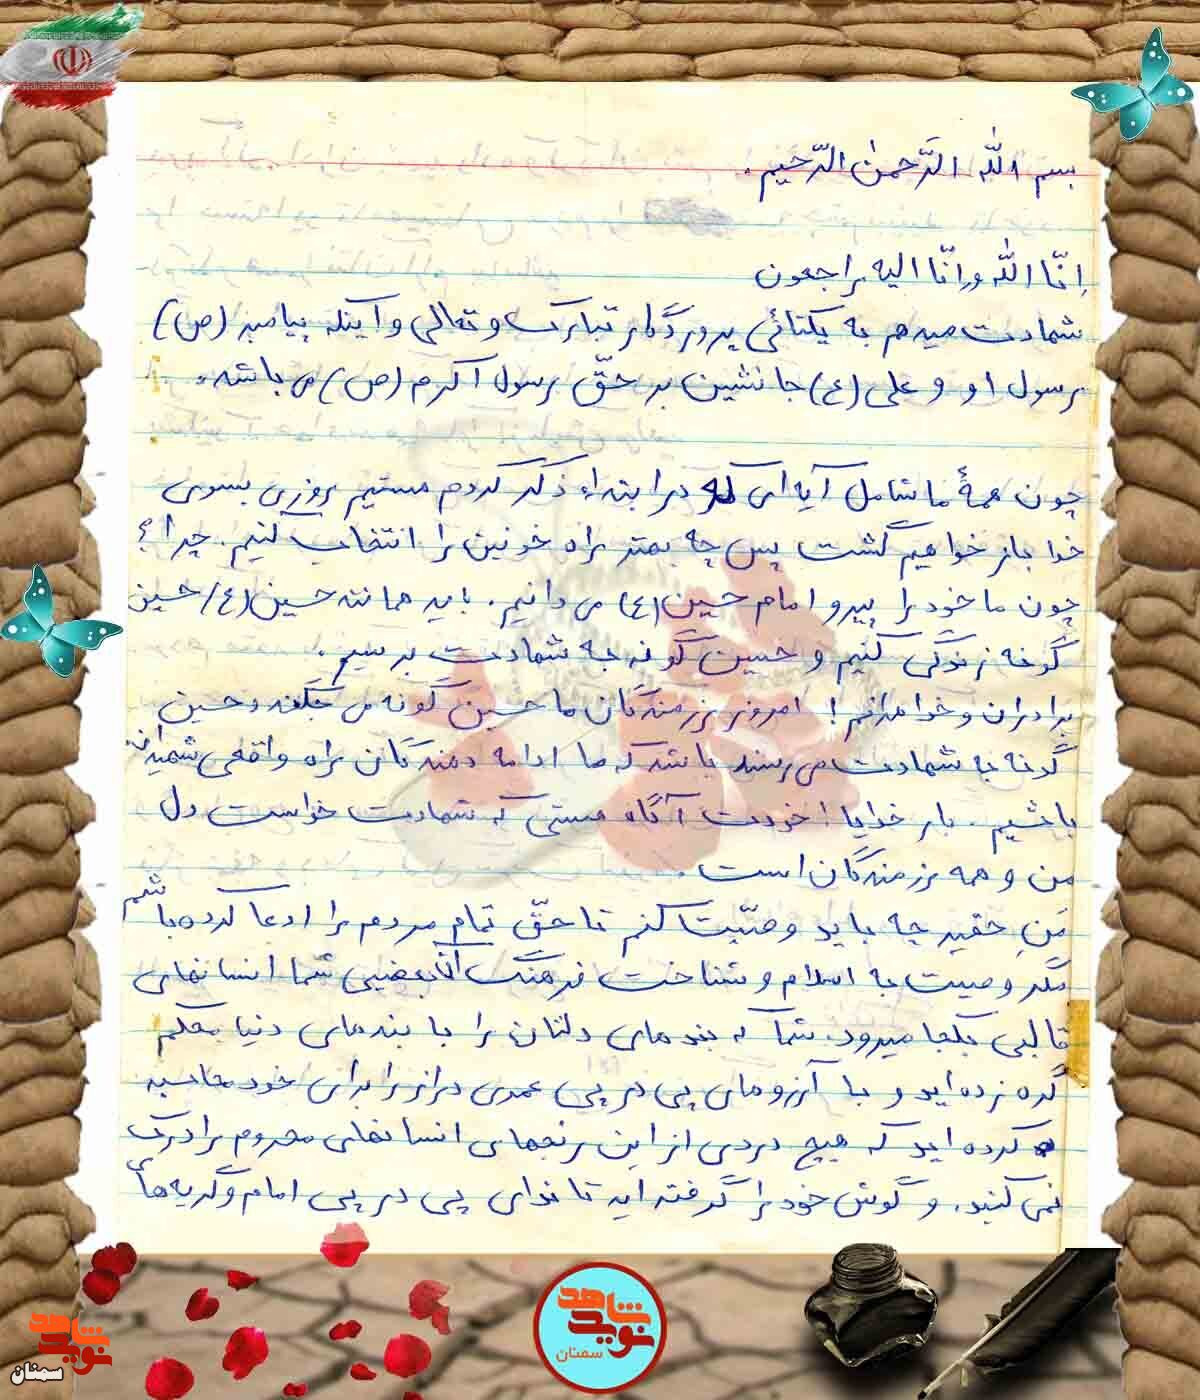 بسم اللّه الرّحمٰن الرّحیم.
اِنّا اللّه و اِنّا الیه راجعون
شهادت میدهم به یکتائی پروردگار تبارک و تعالی و اینکه پیامبر (ص)
رسول او و علی (ع) جانشین بر حقّ رسول اکرم (ص) می باشد.
چون همهٔ ما شامل آیه ای که در ابتداء ذکر کردم هستیم روزی بسوی
خدا باز خواهیم گشت پس چه بهتر راه خونین را انتخاب کنیم. چرا؟
چون ما خود را پیرو امام حسین (ع) می دانیم. باید همانند حسین (ع) حسین
گونه زندگی کنیم و حسین گونه به شهادت برسیم.
برادران و خواهرانم! امروز رزمندگان ما حسین گونه می جنگند و حسین
گونه به شهادت می رسند باشد که ما ادامه دهندگان راه واقعی شهیدان
باشیم. بار خدایا! خودت آگاه هستی که شهادت خواست دل
من و همه رزمندگان است.
مَنِ حقیر چه باید وصیّت کنم تا حقّ تمام مردم را ادعا کرده باشم
مگر وصیت به اسلام و شناخت فرهنگ بعضیی شما انسانهای
قالبی بکجا میرود. شما که بندهای دلتان را با بندهای دنیا محکم
گره زده اید و با آرزوهای پی در پی عمری دراز را برای خود محاسبه
کرده اید که هیچ دردی از این رنجهای انسانهای محروم را درک
نمی کنید. و گوش خود را گرفته اید تا ندای پی در پی امام و گریه های
شاهد
نوید
سمنان
شاهد
نوید
سمنان